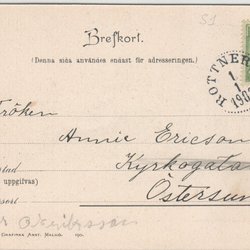 S1
Brefkort.
(Denna sida användes endast för adresseringen.)
ROTTNER
1
1
190
Fröken
Annie Ericson
Kyrkogata
stad
uppgifvas)
Östersun
Grafiska Anst. Malmö. 190.